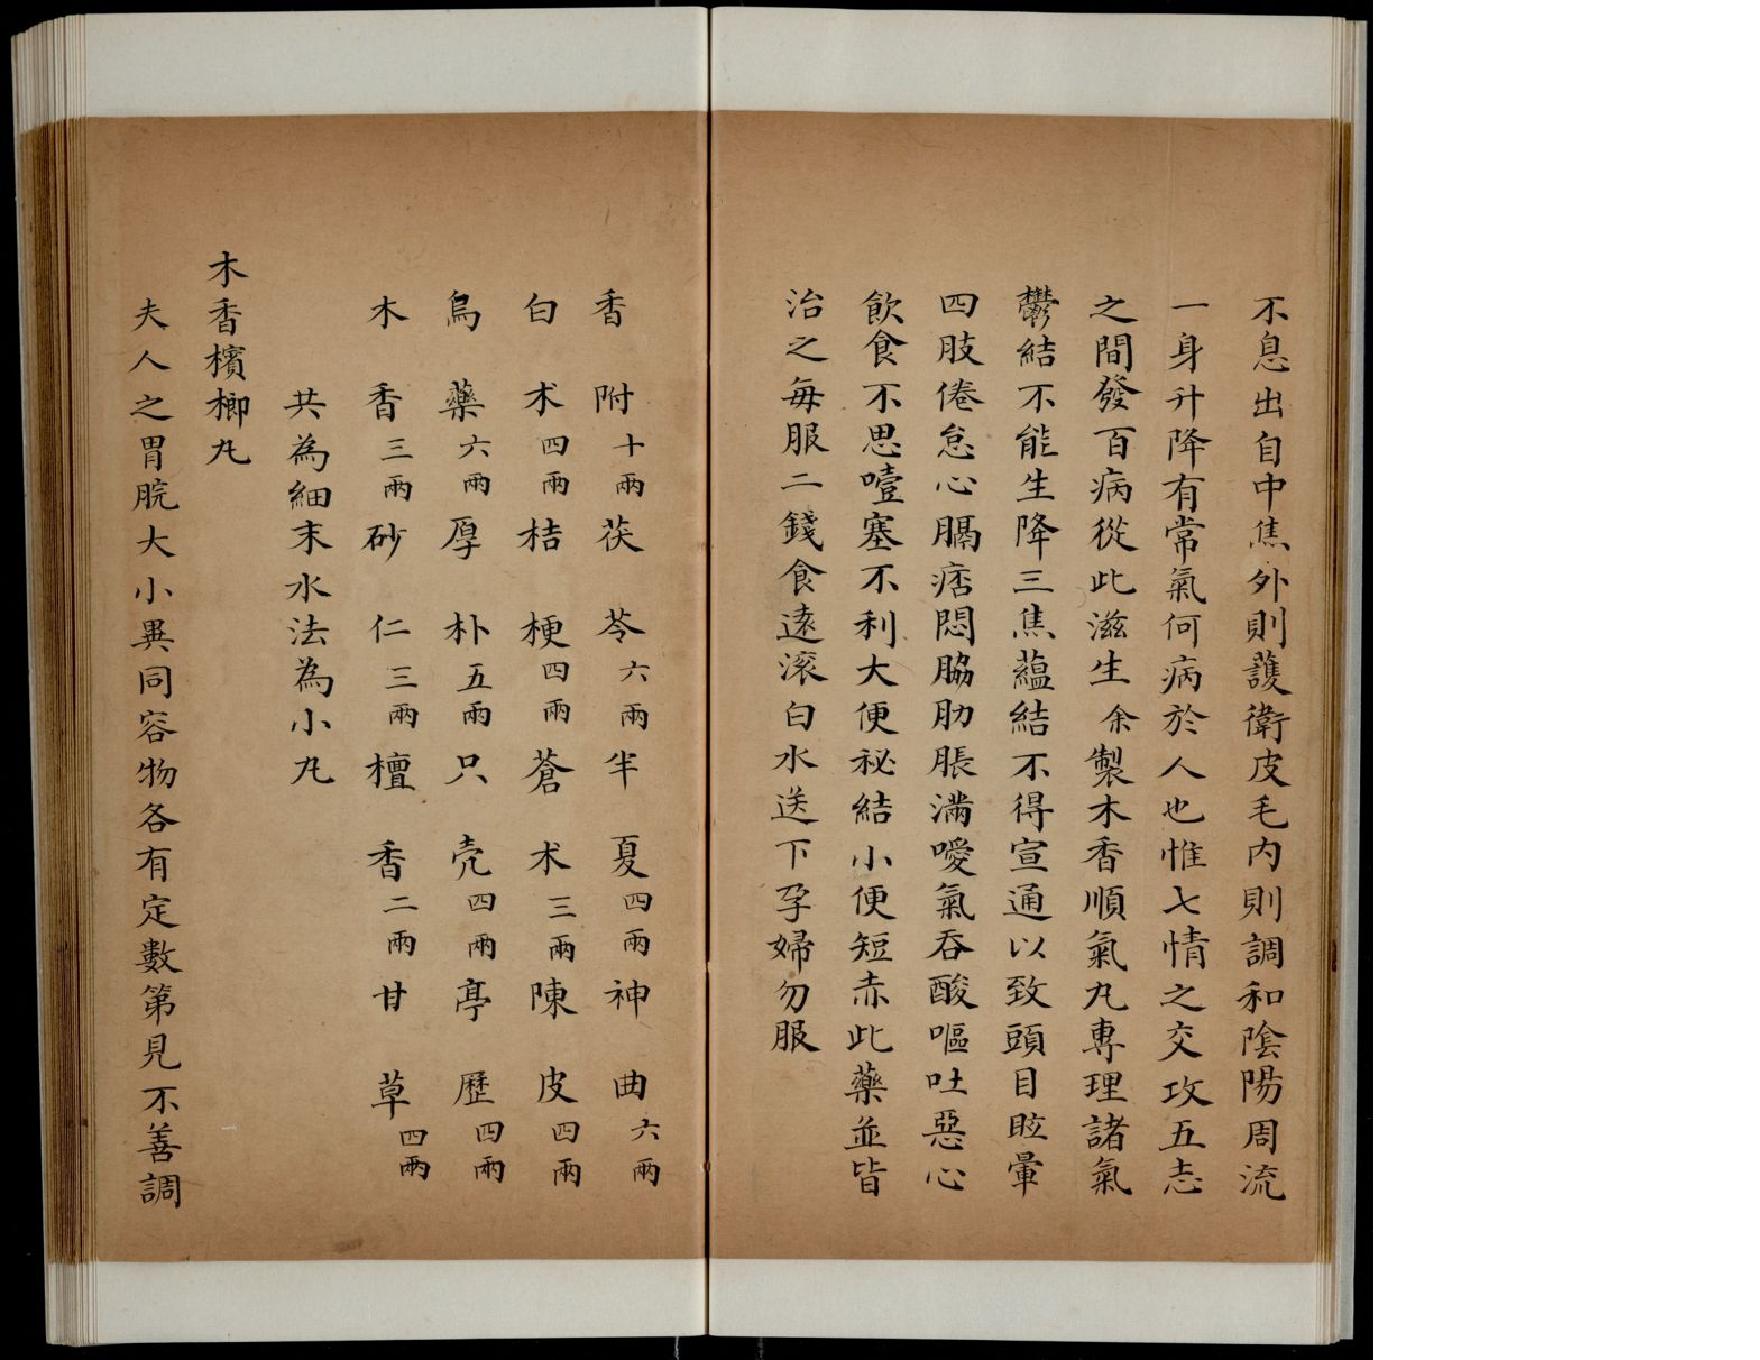 不息出自中焦外則護衛皮毛內則調和陰陽周流
一身升降有常氣何病於人也惟七情之交攻五志
之間發百病從此滋生余製木香順氣丸專理諸氣
鬱結不能生降三焦蘊結不得宣通以致頭目眩暈
四肢倦怠心膈痞悶脇肋脹滿噯氣吞酸嘔吐惡心
飲食不思噎塞不利大便秘結小便短赤此藥並皆
治之每服二錢食遠滚白水送下孕婦勿服
香附十兩茯苓六兩半夏四兩神曲六兩
白朮四兩桔梗四兩蒼朮三兩陳皮四兩
烏藥六兩厚朴五兩只壳四兩亭歷四兩
木香三兩砂仁三兩檀香二兩甘草四兩
共為細末水法為小丸
木香檳榔丸
夫人之胃脘大小異同容物各有定數第見不善調